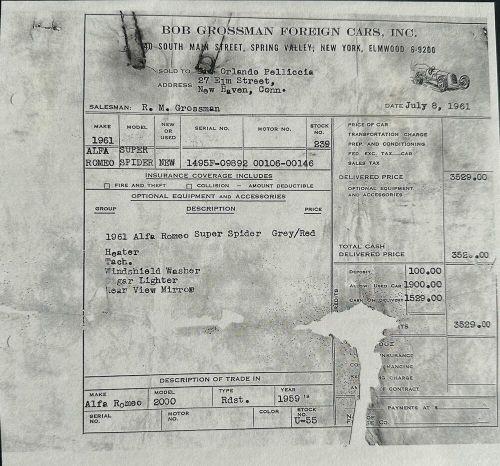 BOB GROSSMAN FOREIGN CARS, INC.
SOUTH MAIN STREET, SPRING VALLEY, NEW YORK, ELMWOOD 6-9200
SOLD TO Orlando Pelliccia
ADDRESS 27 Elm Street,
New Haven, Conn.
SALESMAN: R. M. Grossman
DATE July 8, 1961
MAKE MODEL NEW OR USED SERIAL NO. MOTOR NO. STOCK NO.
1961 239
ALFA SUPER
ROMEO SPIDER NEW 1495F-09892 00106-00146
PRICE OF CAR
TRANSPORTATION CHARGE
PREP. AND CONDITIONING
FED. EXC. TAX CAR
SALES TAX
INSURANCE COVERAGE INCLUDES
FIRE AND THEFT COLLISION - AMOUNT DEDUCTIBLE
DELIVERED PRICE 3529.00
OPTIONAL EQUIPMENT AND ACCESSORIES
OPTIONAL EQUIPMENT AND ACCESSORIES
GROUP DESCRIPTION PRICE
1961 Alfa Romeo Super Spider Grey/Red
Heater
Tach.
Windshield Washer
gar Lighter
ear View Mirror
TOTAL CASH
DELIVERED PRICE 3529.00
DEPOSIT 100.00
ALLOW. USED CAR 1900.00
CASH ON DELIVERY 1529.00
TS 3529.00
INSURANCE
NANCING
CHARGE
CONTRACT
PAYMENTS AT $
DESCRIPTION OF TRADE IN
MAKE MODEL TYPE YEAR
Alfa Romeo 2000 Rdst. 1959
SERIAL NO. MOTOR NO. COLOR STOCK NO.
U-55